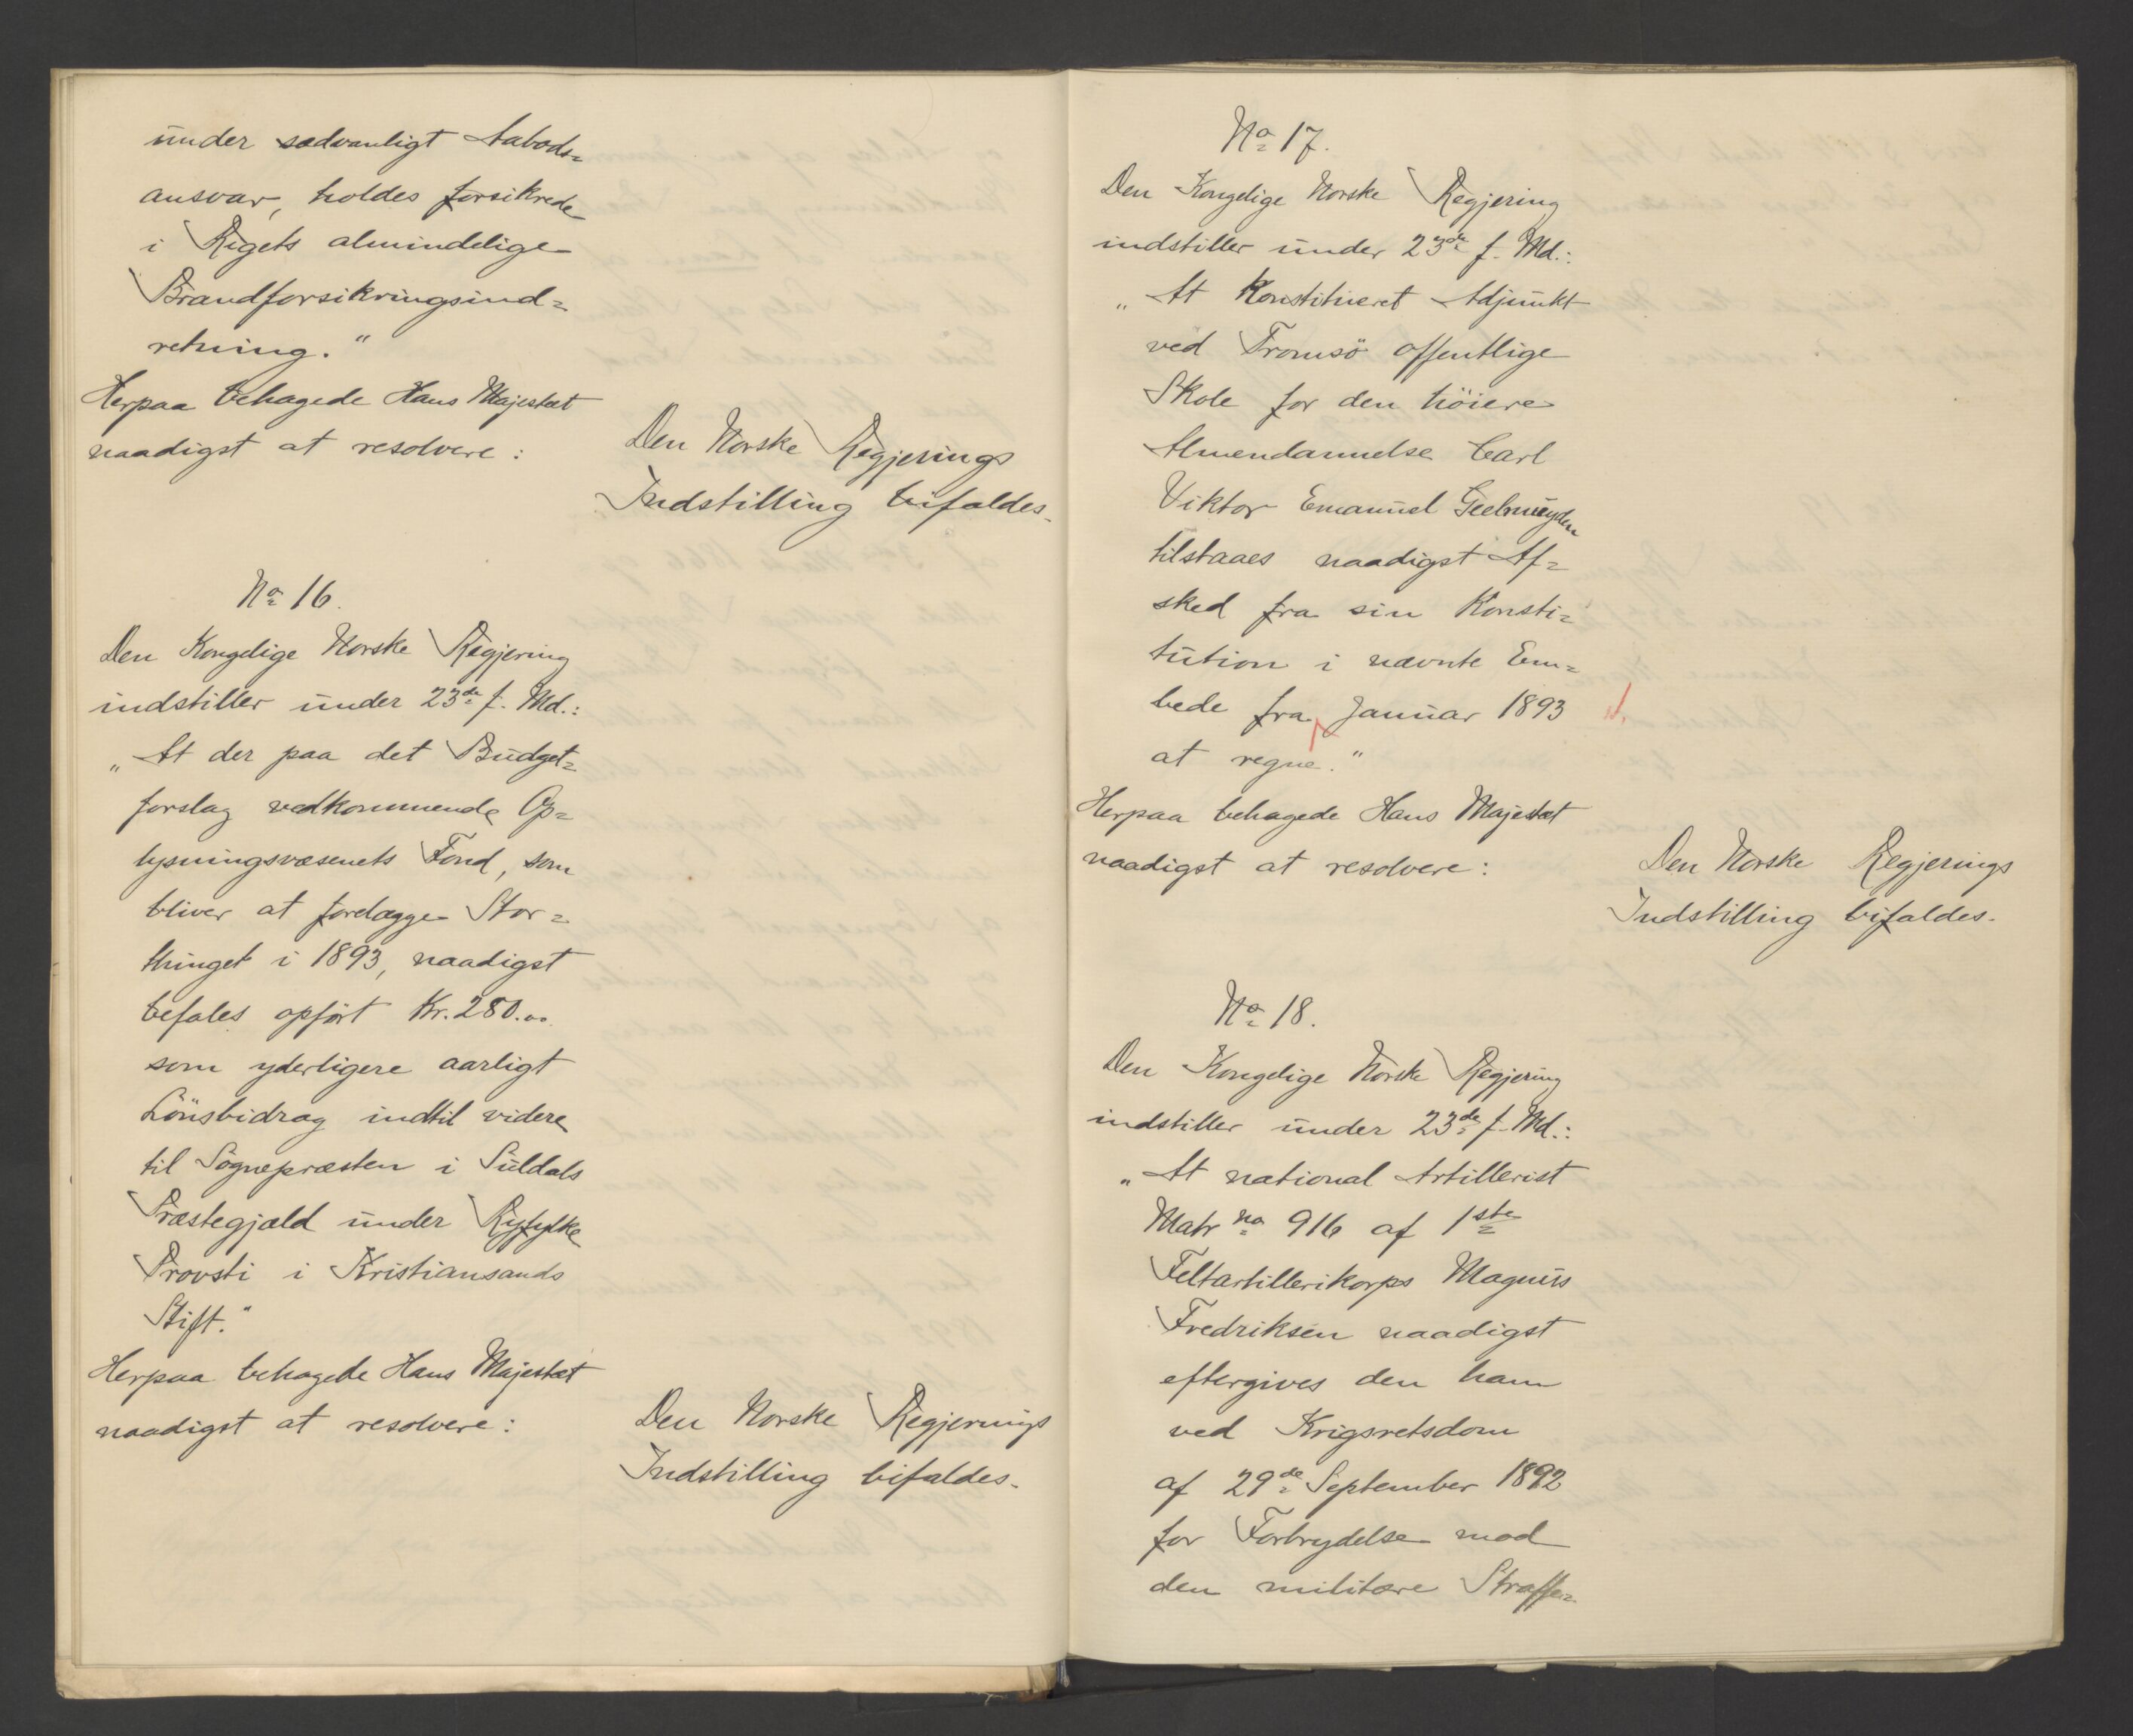 under sædvanligt Aabods=
ansvar, holdes forsikrede
i Rigets almindelige
Brandforsikringsind=
retning."
Herpaa behagede Hans Majestæt
naadigst at resolvere:
Den Norske Regjerings
Indstilling bifaldes.
No 16.
Den Kongelige Norske Regjering
indstiller under 23de f. Md.:
„At der paa det Budget=
forslag vedkommende Op=
lysningsvæsenets Fond, som
bliver at forelægge Stor=
thinget i 1893, naadigst
befales opført Kr. 280.00
som yderligere aarligt
Lönsbidrag indtil videre
til Sognepræsten i Suldals
Præstegjæld under Ryfylke
Provsti i Kristiansands
Stift."
Herpaa behagede Hans Majestæt
naadigst at resolvere:
Den Norske Regjerings
Indstilling bifaldes.
No 17.
Den Kongelige Norske Regjering
indstiller under 23de f. Md.:
„At Konstitueret Adjunkt
ved Tromsö offentlige
Skole for den höiere
Almendannelse Carl
Viktor Emanuel Geelmuyden
tilstaaes naadigst Af=
sked fra sin Konsti=
tution i nævnte Em=
bede fra Januar 1893
at regne."
Herpaa behagede Hans Majestæt
naadigst at resolvere:
Den Norske Regjerings
Indstilling bifaldes.
No 18.
Den Kongelige Norske Regjering
indstiller under 23de f. Md.:
„At national Artillerist
Matr no 916 af 1ste
Feltartillerikorps Magnus
Fredriksen naadigst
eftergives den ham
ved Krigsretsdom
af 29de September 1892
for Forbrydelse mod
den militære Straffe=